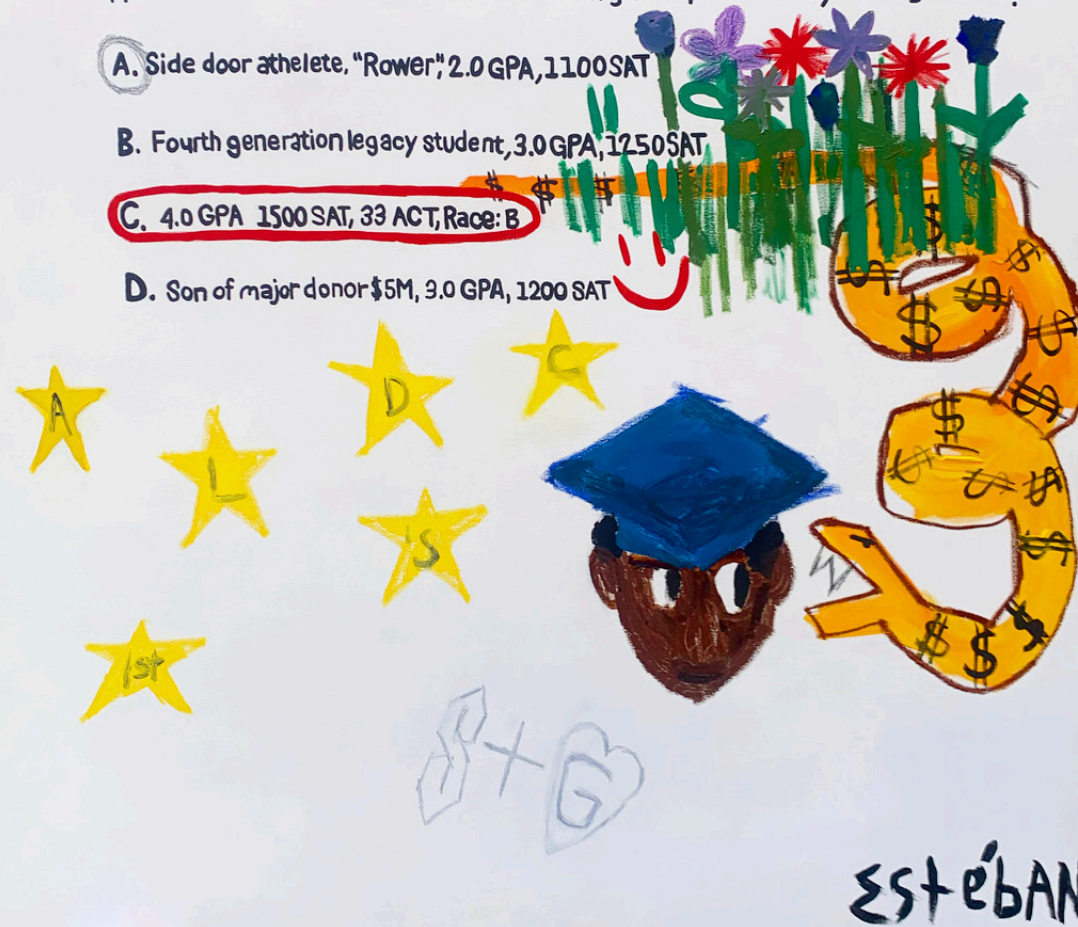 A. Side door athelete, "Rower", 2.0 GPA, 1100 SAT
B. Fourth generation legacy student, 3.0 GPA, 1250 SAT
C. 4.0 GPA 1500 SAT, 33 ACT, Race: B
D. Son of major donor $5M, 3.0 GPA, 1200 SAT
A
L
D
C
'S
1st
S+G
EstébAN